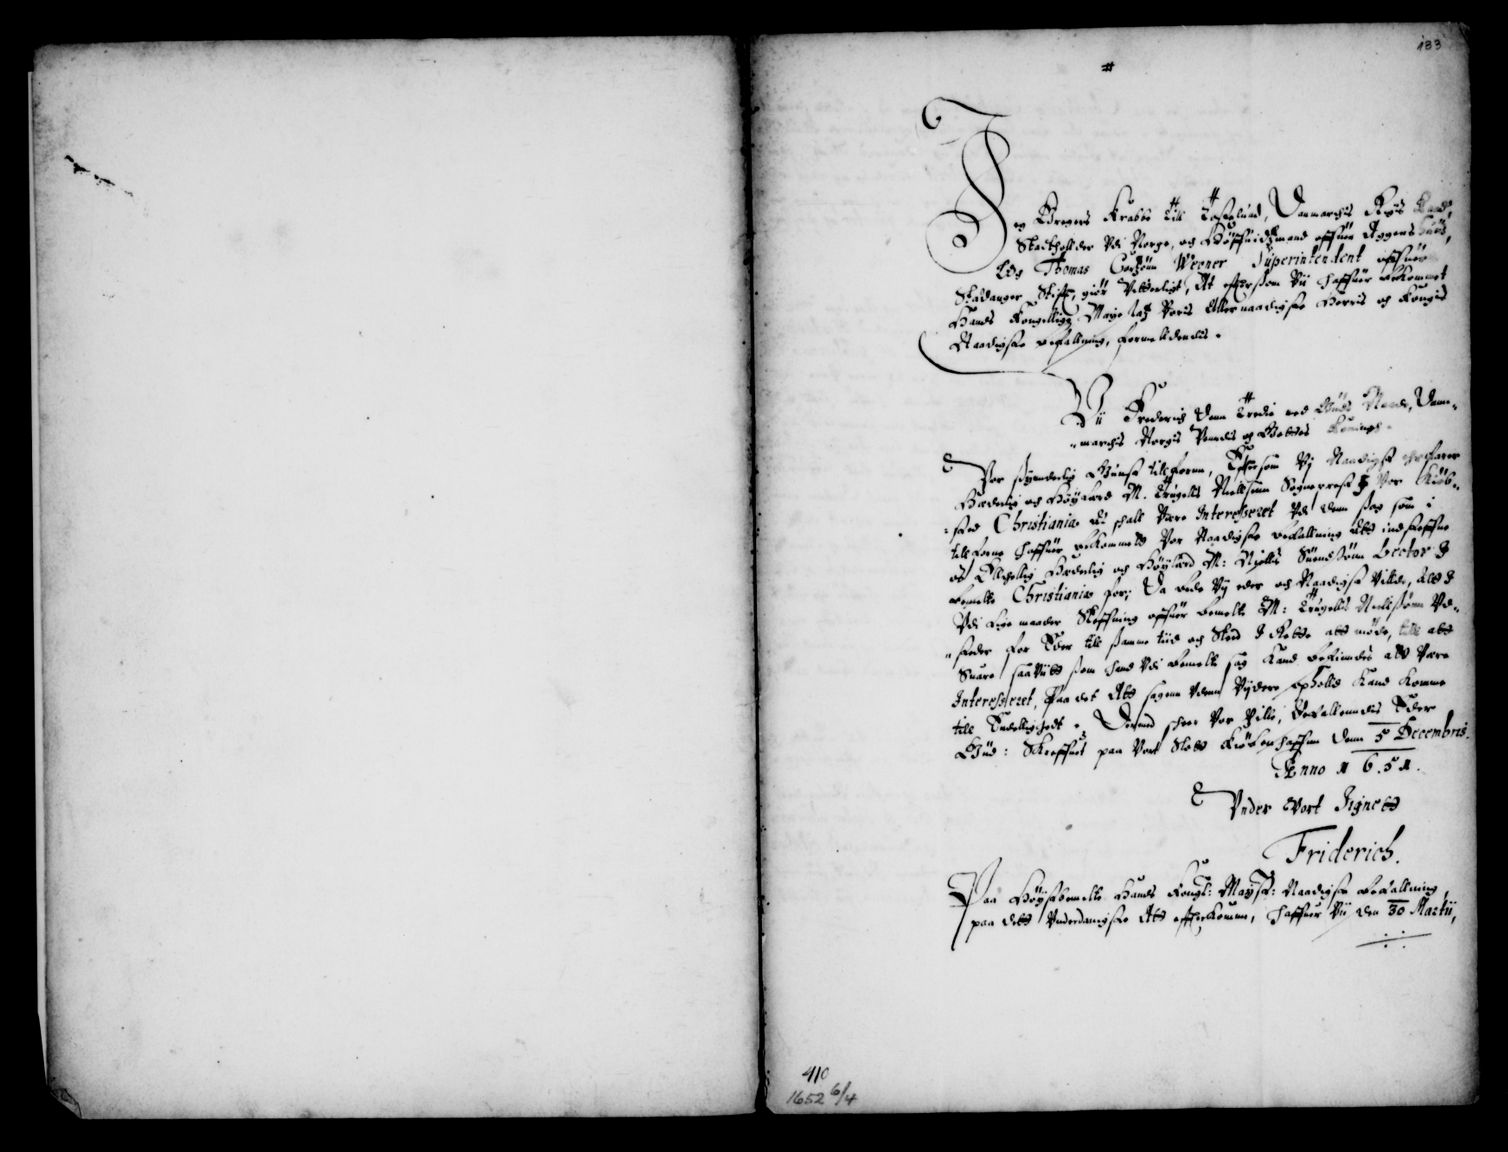 133
#
Jeg Gregers Krabbe till Tostelund, Danmarchis Rigs Raad,
Stadtholder Udi Norge, och Höffuidtzmand offuer Aggershuus,
Och Thomas Cortzönn Wegner Superintendent offuer
Stadanger Stifft, giör Vitterligt, At efftersom Vii haffuer bekommet
Hands Kongellige Mayestatz Voris Allernaadigste Herris och Kongis
Naadigste befallning, formelidendis.
Vii Frederich denn Tredie med Guds Naade, Dann-
marchis Norgis Vendis og Gottes Konning.
Vor synderlig Gunst tilforne, Eftersom Vij Naadigst erfarer
Hæderlig och Höylærd M. Trugels Nielssönn Sogneprest J Vor Kiöb-
sted Christiania at schall være Interesseret Udi denn sag som i
tillforne haffuer bekommett Vor Naadigste befallning Att indsteffne
os Elschellig Hæderlig och Höylærd M: Niels Suendssönn Lector J
bemelte Christiania for; Da bede Vij eder och Naadigst Vilde, Att J
Udi lige maader Steffning offuer bemelte M: Trugels Nielssönn Ud-
steder for Eder till samme tiid och Sted J Rette att möde, till att
Suare saauitt som hand Udi bemelte sag kand befindes att være
Interesseret, Paa det Att sagenn Udenn Vijdere ophold kand komme
till Endelighedt. Dermed scheer Vor Vilie, Befallenndis Eder
Gud: Schreffuet paa Vort Slott Kiöbenhaffn denn 5 Decembris.
Anno 1651.
Under Vort Signett
Friderich.
Paa Höystbemelte Hands Kongl: Mayst: Naadigste befallning,
paa dett Underdanigste Att efterkomme, haffuer Vii den 30 Martii,
410
1652 6/4